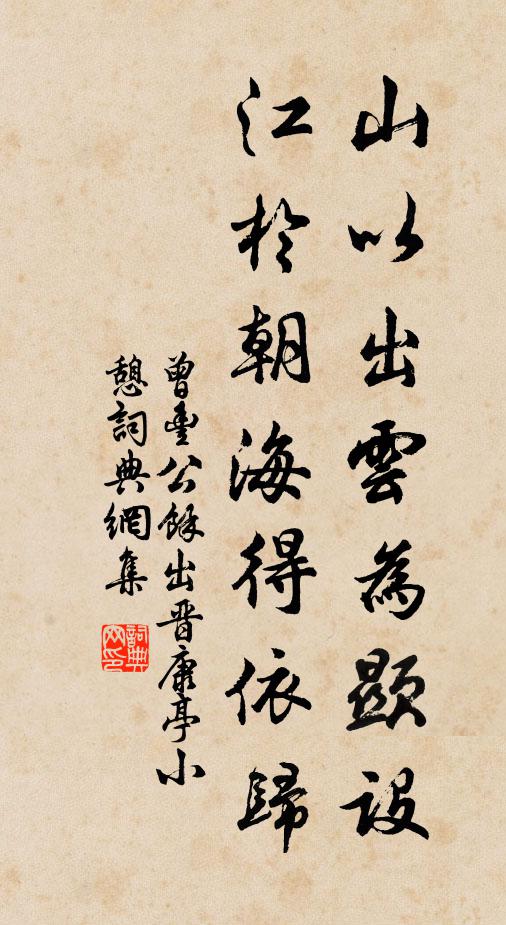 山以出雲為顯設
江於朝海得依歸
曾豐公餘出晋康亭小
憩詞典網集
詞典
网印